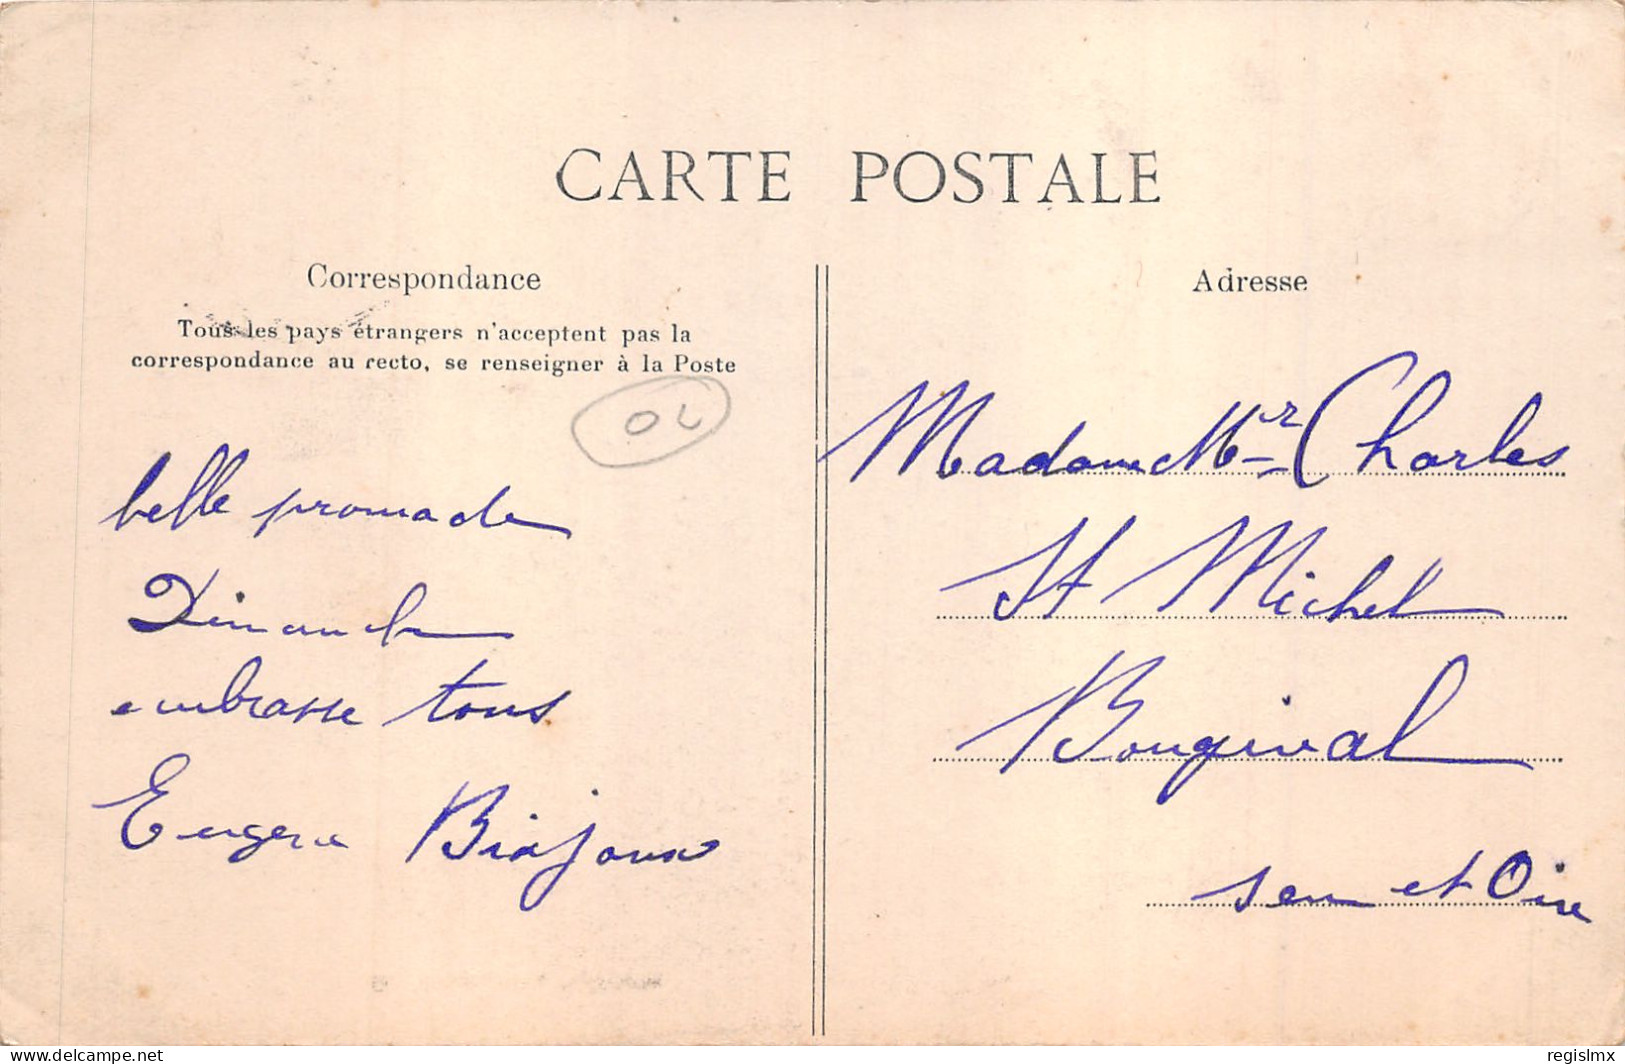 CARTE POSTALE
Correspondance
Tous les pays étrangers n'acceptent pas la
correspondance au recto, se renseigner à la Poste
OL
belle promade
Dimanche
embrasse tous
Eugene Biajoux
Adresse
Madame Mr Charles
St Michel
Bougival
Sein et Oise
www.delcampe.net
regislmx